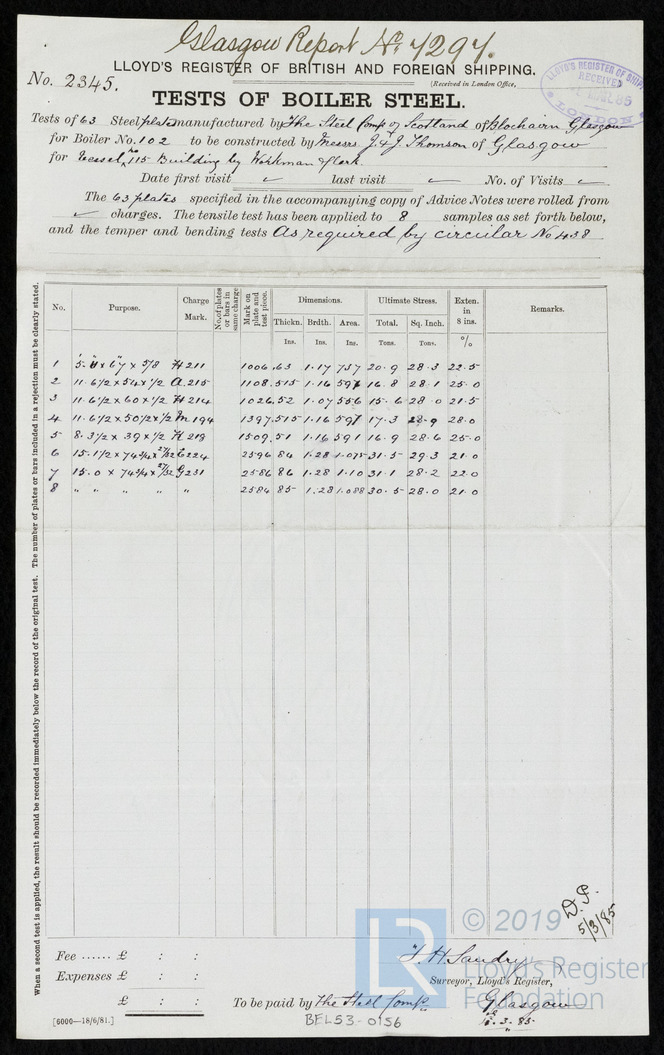 Glasgow Report No. 4294.
LLOYD'S REGISTER OF BRITISH AND FOREIGN SHIPPING.
No. 2345.
(Received in London Office,
LLOYD'S REGISTER OF SHIP
RECEIVED
85
LONDON
TESTS OF BOILER STEEL.
Tests of 63 Steel plates manufactured by The Steel Comp'y of Scotland of Blochairn Glasgow
for Boiler No. 102 to be constructed by Messrs J. & J. Thomson of Glasgow
for Vessel No 115 Building by Workman & Clark
Date first visit ✓ last visit ✓ No. of Visits ✓
The 63 plates specified in the accompanying copy of Advice Notes were rolled from
✓ charges. The tensile test has been applied to 8 samples as set forth below,
and the temper and bending tests As required by circular No 438
No. Purpose. Charge Mark. No. of plates or bars in same charge Mark on plate and test piece. Dimensions. Ultimate Stress. Exten. in 8 ins. Remarks.
Thickn. Brdth. Area. Total. Sq. Inch.
Ins. Ins. Ins. Tons. Tons. %
1 5.11 x 6"7 x 5/8 H 211 1006 .63 1.17 .737 20.9 28.3 22.5
2 11.6 1/2 x 54 x 1/2 A 215 1108 .515 1.16 .597 16.8 28.1 25.0
3 11.6 1/2 x 60 x 1/2 H 214 1026 .52 1.07 .556 15.6 28.0 21.5
4 11.6 1/2 x 50 1/2 x 1/2 M 194 1397 .515 1.16 .597 17.3 28.9 28.0
5 8.3 1/2 x 39 x 1/2 K 219 1509 .51 1.16 .591 16.9 28.6 25.0
6 15.1 1/2 x 74 3/4 x 27/32 E 224 2596 84 1.28 1.075 31.5 29.3 21.0
7 15.0 x 74 3/4 x 27/32 G 231 2586 86 1.28 1.10 31.1 28.2 22.0
8 " " " " " 2584 85 1.28 1.088 30.5 28.0 21.0
When a second test is applied, the result should be recorded immediately below the record of the original test. The number of plates or bars included in a rejection must be clearly stated.
D.P.
5/3/85
LR © 2019
Lloyd's Register
Foundation
Fee ...... £ : :
Expenses £ : :
£ : :
Surveyor, Lloyd's Register,
To be paid by The Steel Comp'y Glasgow
[6000—18/6/81.]
BEL53-0156
3.85